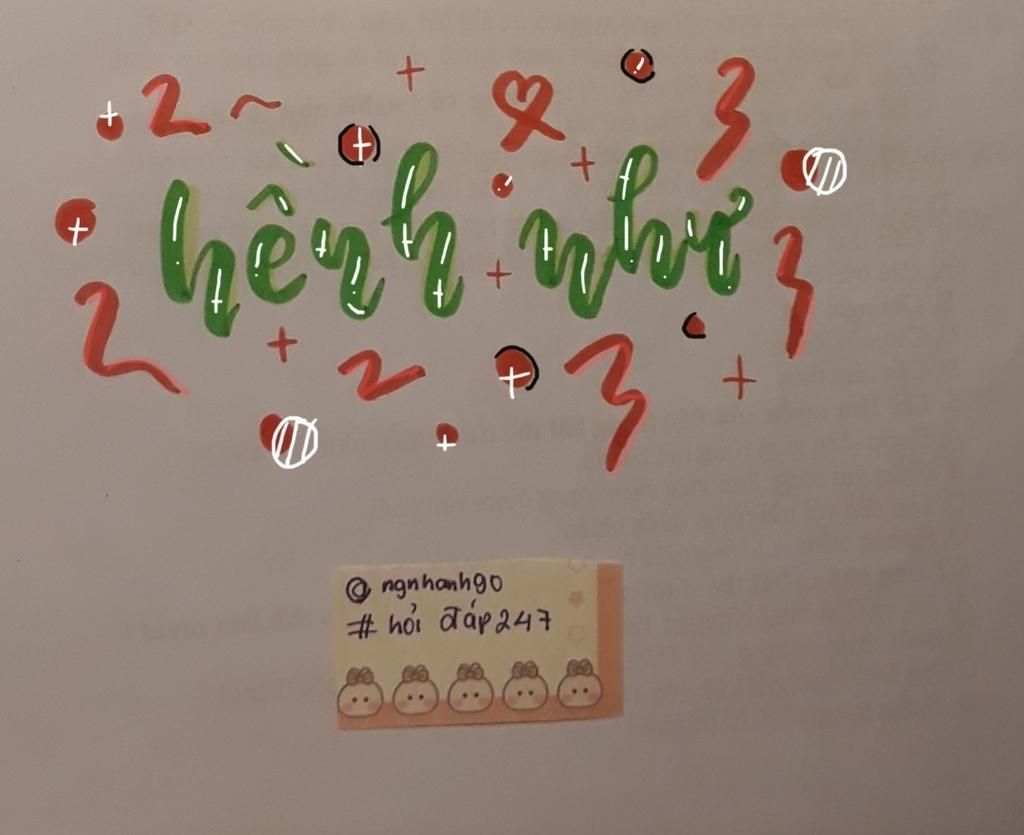 hềnh như
@ ngnhanh90
# hỏi đáp247